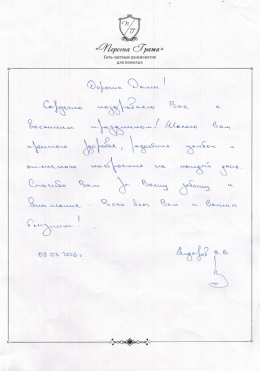 П/Г
«Персона Грата»
Сеть частных пансионатов
для пожилых
Дорогие Дамы!
Сердечно поздравляю Вас с
весенним праздником! Желаю Вам
крепкого здоровья, радостных улыбок и
отличного настроения на каждый день.
Спасибо Вам за Вашу заботу и
внимание. Всего Вам и вашим
близким!
В.В.